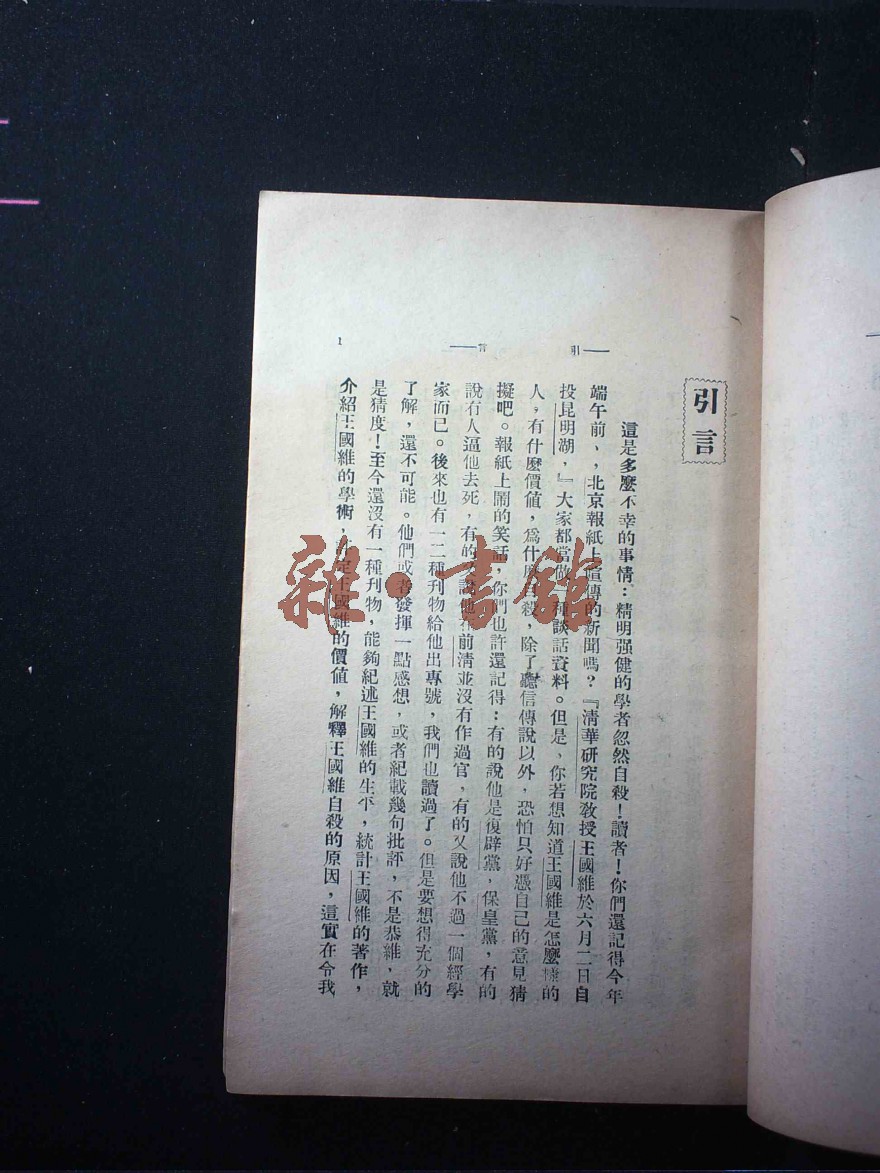 引言
這是多麼不幸的事情：精明强健的學者忽然自殺！讀者！你們還記得今年
端午前，，北京報紙上宣傳的新聞嗎？『清華研究院敎授王國維於六月二日自
投昆明湖，』大家都當做一種談話資料。但是，你若想知道王國維是怎麼樣的
人，有什麼價値，爲什麼自殺，除了聽信傳說以外，恐怕只好憑自己的意見猜
擬吧。報紙上鬧的笑話，你們也許還記得：有的說他是復辟黨，保皇黨，有的
說有人逼他去死，有的又說他在前淸並沒有作過官，有的又說他不過一個經學
家而已。後來也有一二種刊物給他出專號，我們也讀過了。但是要想得充分的
了解，還不可能。他們或者發揮一點感想，或者紀載幾句批評，不是恭維，就
是猜度！至今還沒有一種刊物，能夠紀述王國維的生平，統計王國維的著作，
介紹王國維的學術，評定王國維的價値，解釋王國維自殺的原因，這實在令我
引言
1
雜·書館